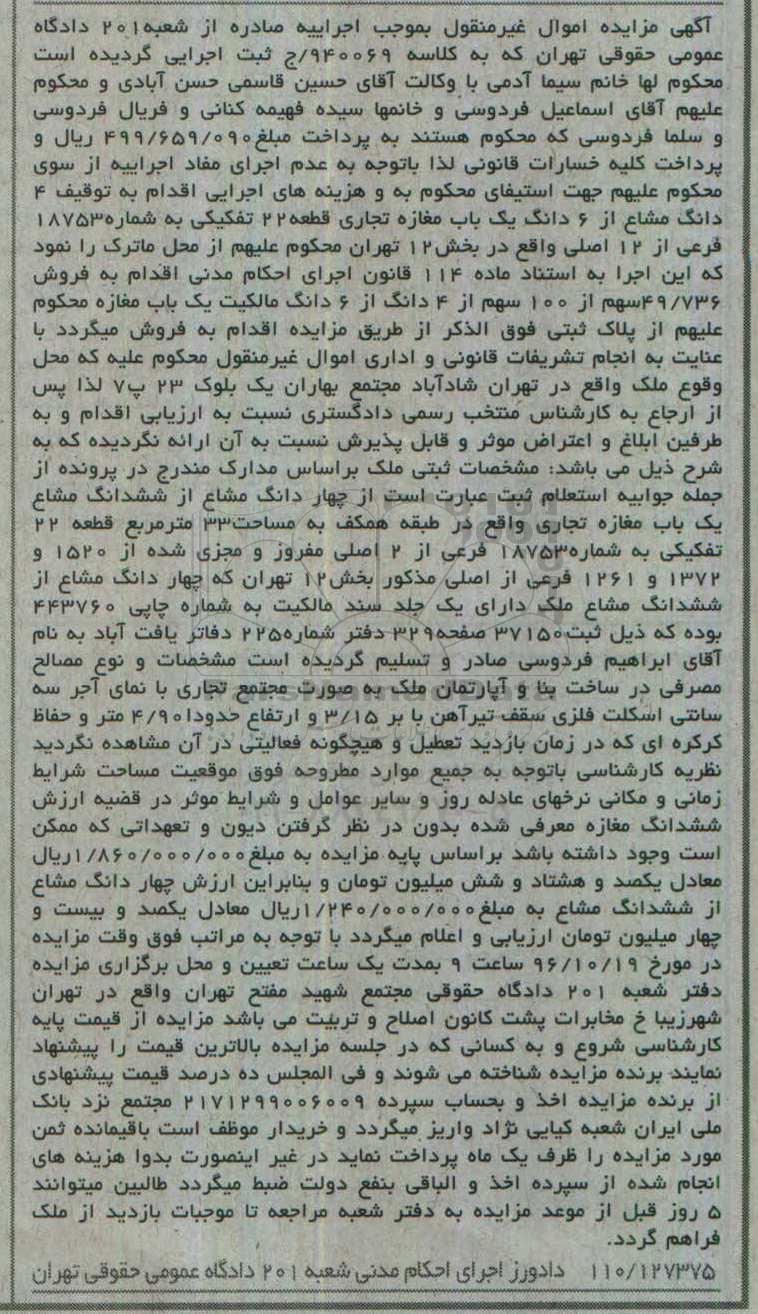 آگهی مزایده اموال غیرمنقول بموجب اجراییه صادره از شعبه۲۰۱ دادگاه
عمومی حقوقی تهران که به کلاسه ۹۴۰۰۶۹/ج ثبت اجرایی گردیده است
محکوم لها خانم سیما آدمی با وکالت آقای حسین قاسمی حسن آبادی و محکوم
علیهم آقای اسماعیل فردوسی و خانمها سیده فهیمه کنانی و فریال فردوسی
و سلما فردوسی که محکوم هستند به پرداخت مبلغ۴۹۹/۶۵۹/۰۹۰ ریال و
پرداخت کلیه خسارات قانونی لذا باتوجه به عدم اجرای مفاد اجراییه از سوی
محکوم علیهم جهت استیفای محکوم به و هزینه های اجرایی اقدام به توقیف ۴
دانگ مشاع از ۶ دانگ یک باب مغازه تجاری قطعه۲۲ تفکیکی به شماره۱۸۷۵۳
فرعی از ۱۲ اصلی واقع در بخش۱۲ تهران محکوم علیهم از محل ماترک را نمود
که این اجرا به استناد ماده ۱۱۴ قانون اجرای احکام مدنی اقدام به فروش
۴۹/۷۳۶سهم از ۱۰۰ سهم از ۴ دانگ از ۶ دانگ مالکیت یک باب مغازه محکوم
علیهم از پلاک ثبتی فوق الذکر از طریق مزایده اقدام به فروش میگردد با
عنایت به انجام تشریفات قانونی و اداری اموال غیرمنقول محکوم علیه که محل
وقوع ملک واقع در تهران شادآباد مجتمع بهاران یک بلوک ۲۳ پ۷ لذا پس
از ارجاع به کارشناس منتخب رسمی دادگستری نسبت به ارزیابی اقدام و به
طرفین ابلاغ و اعتراض موثر و قابل پذیرش نسبت به آن ارائه نگردیده که به
شرح ذیل می باشد: مشخصات ثبتی ملک براساس مدارک مندرج در پرونده از
جمله جوابیه استعلام ثبت عبارت است از چهار دانگ مشاع از ششدانگ مشاع
یک باب مغازه تجاری واقع در طبقه همکف به مساحت۳۳ مترمربع قطعه ۲۲
تفکیکی به شماره۱۸۷۵۳ فرعی از ۲ اصلی مفروز و مجزی شده از ۱۵۲۰ و
۱۳۷۲ و ۱۲۶۱ فرعی از اصلی مذکور بخش۱۲ تهران که چهار دانگ مشاع از
ششدانگ مشاع ملک دارای یک جلد سند مالکیت به شماره چاپی ۴۴۳۷۶۰
بوده که ذیل ثبت۳۷۱۵۰ صفحه۳۲۹ دفتر شماره۲۲۵ دفاتر یافت آباد به نام
آقای ابراهیم فردوسی صادر و تسلیم گردیده است مشخصات و نوع مصالح
مصرفی در ساخت بنا و آپارتمان ملک به صورت مجتمع تجاری با نمای آجر سه
سانتی اسکلت فلزی سقف تیرآهن با بر ۳/۱۵ و ارتفاع حدودا۴/۹۰ متر و حفاظ
کرکره ای که در زمان بازدید تعطیل و هیچگونه فعالیتی در آن مشاهده نگردید
نظریه کارشناسی باتوجه به جمیع موارد مطروحه فوق موقعیت مساحت شرایط
زمانی و مکانی نرخهای عادله روز و سایر عوامل و شرایط موثر در قضیه ارزش
ششدانگ مغازه معرفی شده بدون در نظر گرفتن دیون و تعهداتی که ممکن
است وجود داشته باشد براساس پایه مزایده به مبلغ۱/۸۶۰/۰۰۰/۰۰۰ریال
معادل یکصد و هشتاد و شش میلیون تومان و بنابراین ارزش چهار دانگ مشاع
از ششدانگ مشاع به مبلغ۱/۲۴۰/۰۰۰/۰۰۰ریال معادل یکصد و بیست و
چهار میلیون تومان ارزیابی و اعلام میگردد با توجه به مراتب فوق وقت مزایده
در مورخ ۹۶/۱۰/۱۹ ساعت ۹ بمدت یک ساعت تعیین و محل برگزاری مزایده
دفتر شعبه ۲۰۱ دادگاه حقوقی مجتمع شهید مفتح تهران واقع در تهران
شهرزیبا خ مخابرات پشت کانون اصلاح و تربیت می باشد مزایده از قیمت پایه
کارشناسی شروع و به کسانی که در جلسه مزایده بالاترین قیمت را پیشنهاد
نمایند برنده مزایده شناخته می شوند و فی المجلس ده درصد قیمت پیشنهادی
از برنده مزایده اخذ و بحساب سپرده ۲۱۷۱۲۹۹۰۰۶۰۰۹ مجتمع نزد بانک
ملی ایران شعبه کیایی نژاد واریز میگردد و خریدار موظف است باقیمانده ثمن
مورد مزایده را ظرف یک ماه پرداخت نماید در غیر اینصورت بدوا هزینه های
انجام شده از سپرده اخذ و الباقی بنفع دولت ضبط میگردد طالبین میتوانند
۵ روز قبل از موعد مزایده به دفتر شعبه مراجعه تا موجبات بازدید از ملک
فراهم گردد.
۱۱۰/۱۲۷۳۷۵ دادورز اجرای احکام مدنی شعبه ۲۰۱ دادگاه عمومی حقوقی تهران